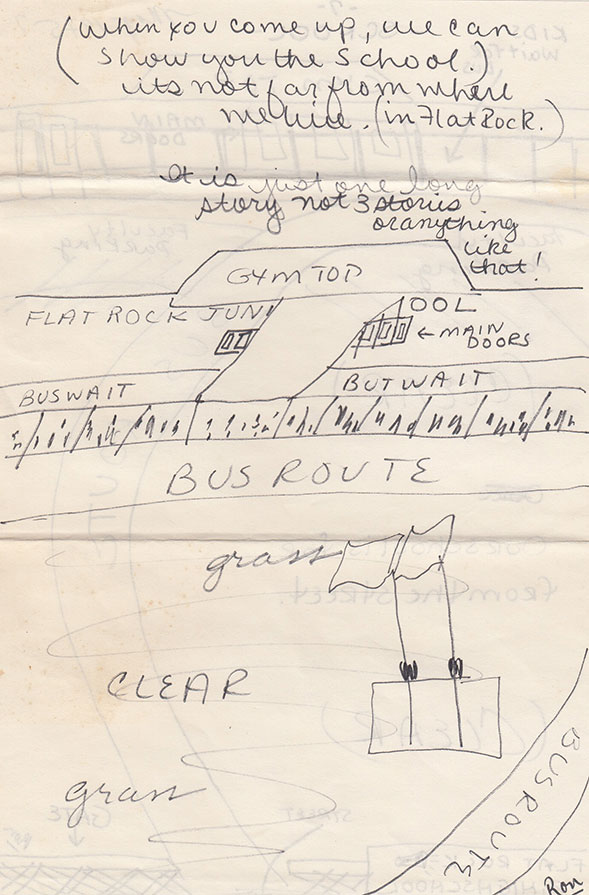 -7-
(When you come up, we can
show you the School.)
its not far from where
we live. (in Flat Rock.)
It is just one long
story not 3 stories
or anything
like
that!
GYM TOP
FLAT ROCK JUNI OOL
← MAIN
DOORS
BUS WAIT BUT WAIT
BUS ROUTE
grass
CLEAR
grass
BUS ROUTE
Ron